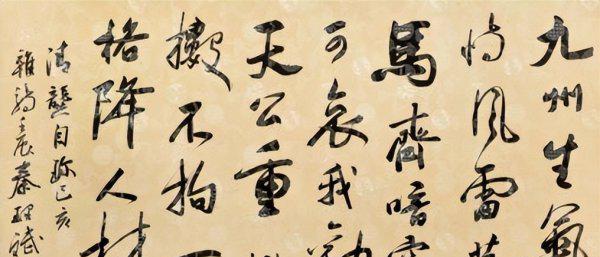 九州生氣
恃风雷
馬齊喑
可哀我勸
天公重
擻不拘一
格降人材
清龔自珍己亥
雜詩壬辰秦理斌